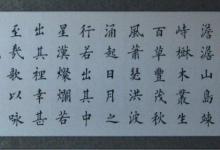 澹澹山島竦
峙樹木叢生
百草豐茂秋
風蕭瑟洪波
涌起日月之
行若出其中
星漢燦爛若
出其裡幸甚
至哉歌以咏